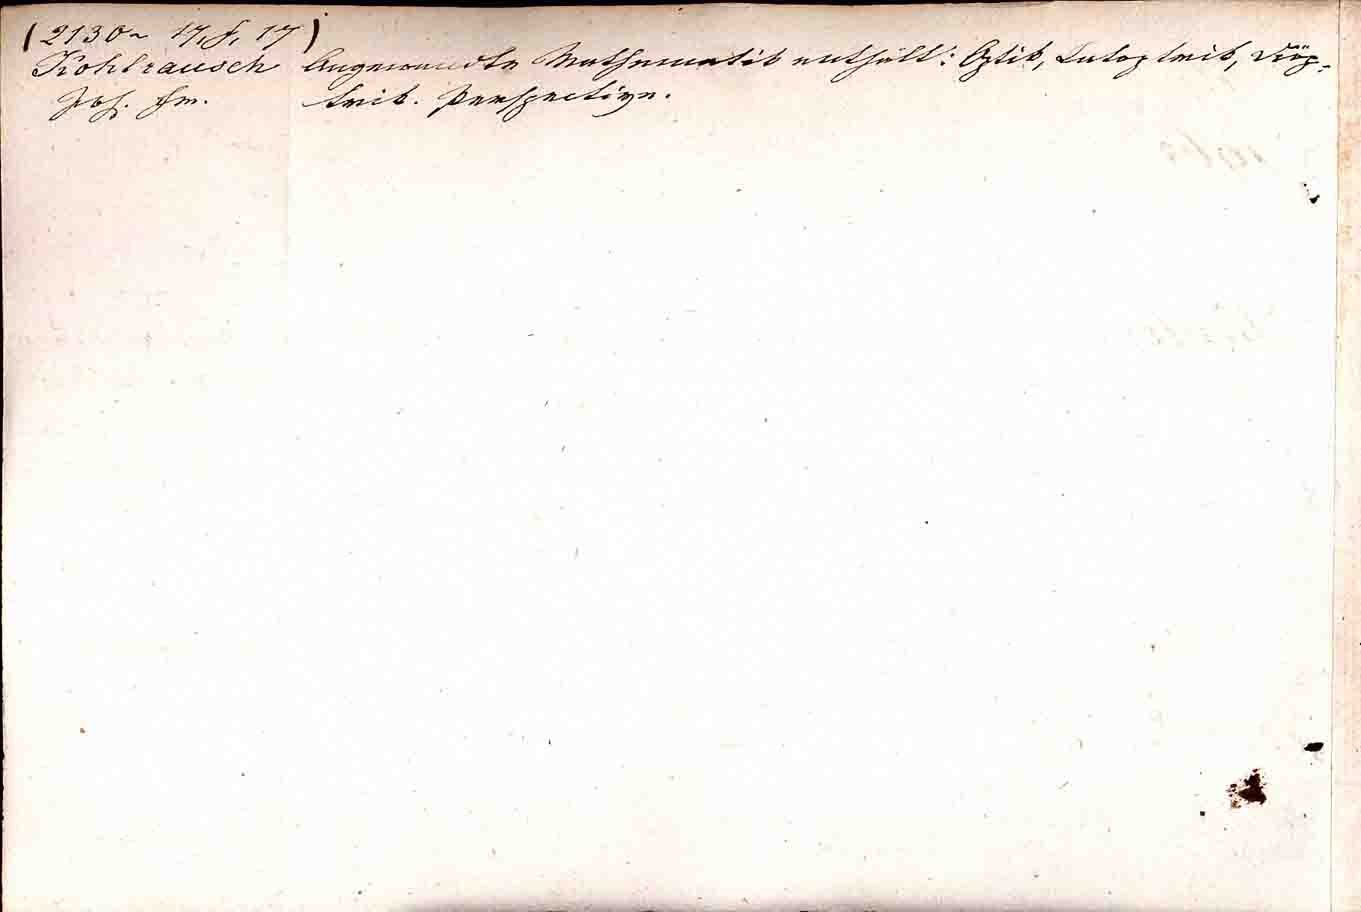 (2130~ 17, f, 17)
Kohlrausch Angewandte Mathematik enthält: Optik, Catoptrik, Diop-
Jos. Fr. trik. Perspective.